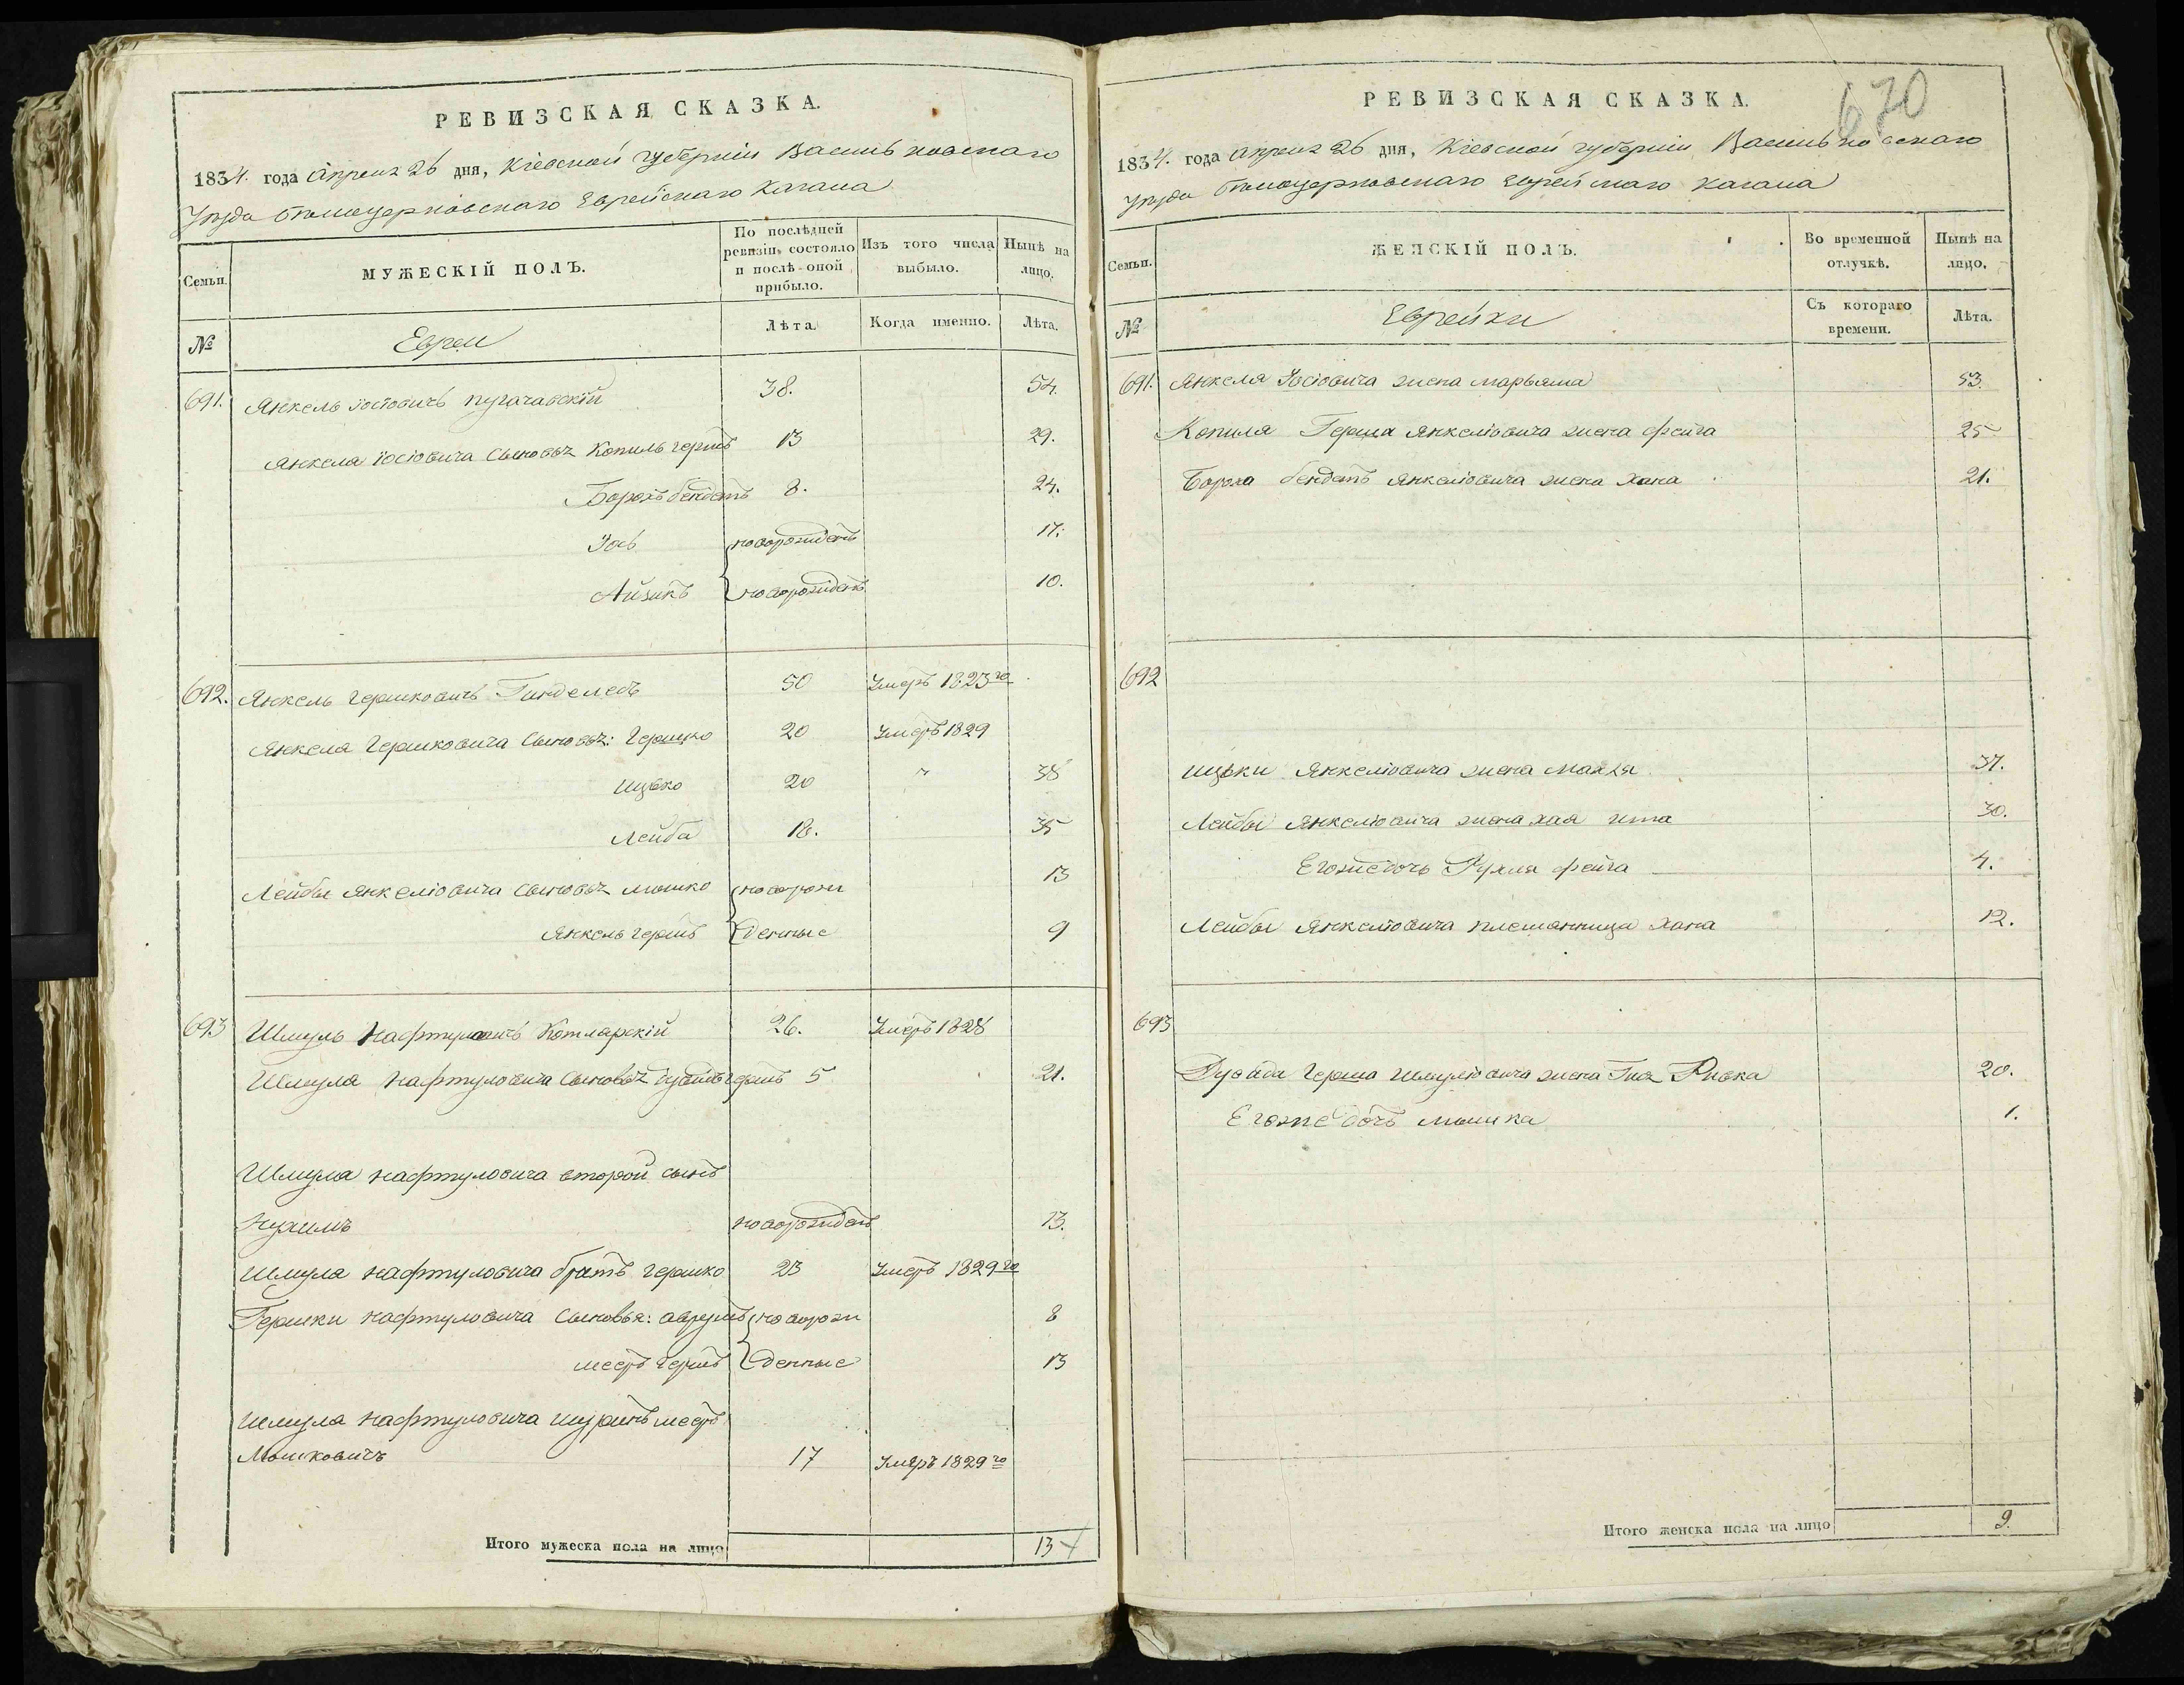 РЕВИЗСКАЯ СКАЗКА.
1834. года Апреля 26 дня, Кіевской губерніи Васильковскаго
Уезда Белоцерковскаго Еврейскаго Кагала
Семьи.
МУЖЕСКІЙ ПОЛЪ.
По послѣдней ревизіи состояло и послѣ оной прибыло.
Изъ того числа выбыло.
Нынѣ на лицо.
№
Евреи
Лѣта.
Когда именно.
Лѣта.
691. Янкель Іосіовичъ Пугачавскій 38. 54.
Янкеля Іосіовича сыновья Копиль Гершъ 13 29.
Борохъ Бендетъ 8. 24.
Іось новорожденъ 17.
Айзикъ новорожденъ 10.
692. Янкель Гершковичъ 50 Умеръ 1823го
Янкеля Гершковича сыновья: Гершко 20 Умеръ 1829
Ицько 20 " 38
Лейба 18. 35
Лейбы Янкеліовича сыновья Мошко новорож 13
Янкель Гершъ денные 9
693 Шмуль Нафтуловичъ Котлярскій 26. Умеръ 1828
Шмуля Нафтуловича сыновья Гершъ 5 21.
Шмуля Нафтуловича второй сынъ
Нухимъ новорожденъ 13.
Шмуля Нафтуловича братъ Гершко 23 Умеръ 1829го
Гершки Нафтуловича сыновья: Аврумъ новорож 8
Мееръ Гершъ денные 13
Шмуля Нафтуловича шуринъ Мееръ
Мошковичъ 17 Умеръ 1829го
Итого мужеска пола на лицо 13
670
РЕВИЗСКАЯ СКАЗКА.
1834. года Апреля 26 дня, Кіевской губерніи Васильковскаго
Уезда Белоцерковскаго Еврейскаго Кагала
Семьи.
ЖЕНСКІЙ ПОЛЪ.
Во временной отлучкѣ.
Нынѣ на лицо.
№
Еврейки
Съ котораго времени.
Лѣта.
691. Янкеля Іосіовича жена Марьяма 53.
Копиля Герша Янкеліовича жена Фейга 25
Бороха Бендетъ Янкеліовича жена Хана 21.
692
Ицьки Янкеліовича жена Махля 37.
Лейбы Янкеліовича жена Хая Ита 30.
Его же дочь Рухля Фейга 4.
Лейбы Янкеліовича племянница Хана 12.
693
Герша Шмуліовича жена Ривка 20.
Его же дочь 1.
Итого женска пола на лицо 9.